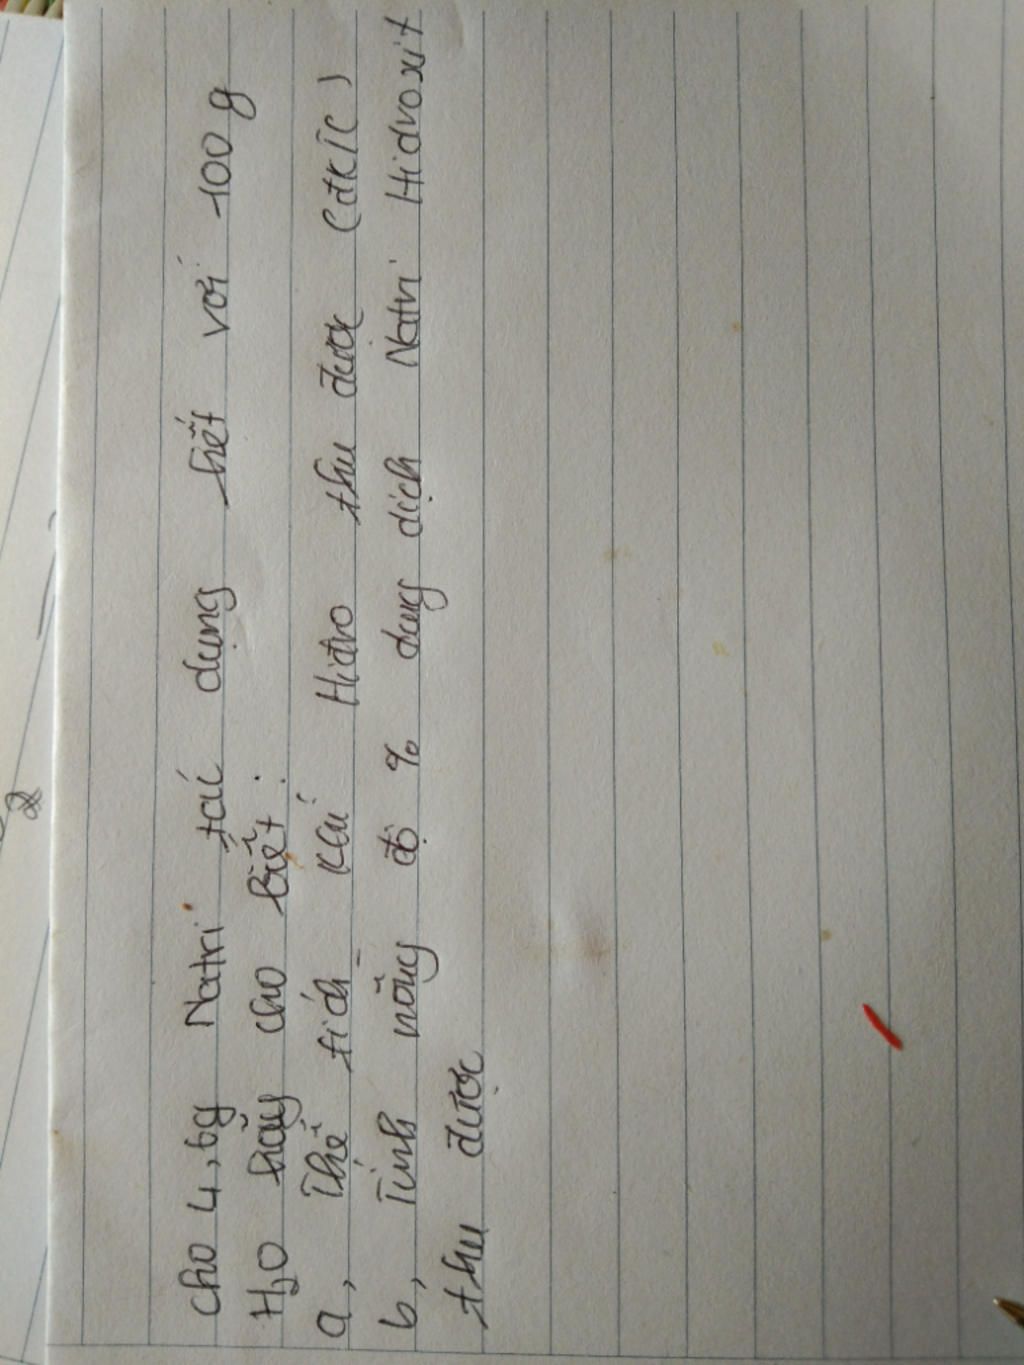 cho 4,6g Natri tác dụng hết với 100g
H₂O hãy cho biết :
a, Thể tích khí Hiđro thu được (đktc)
b, Tính nồng độ % dung dịch Natri Hidroxit
thu được